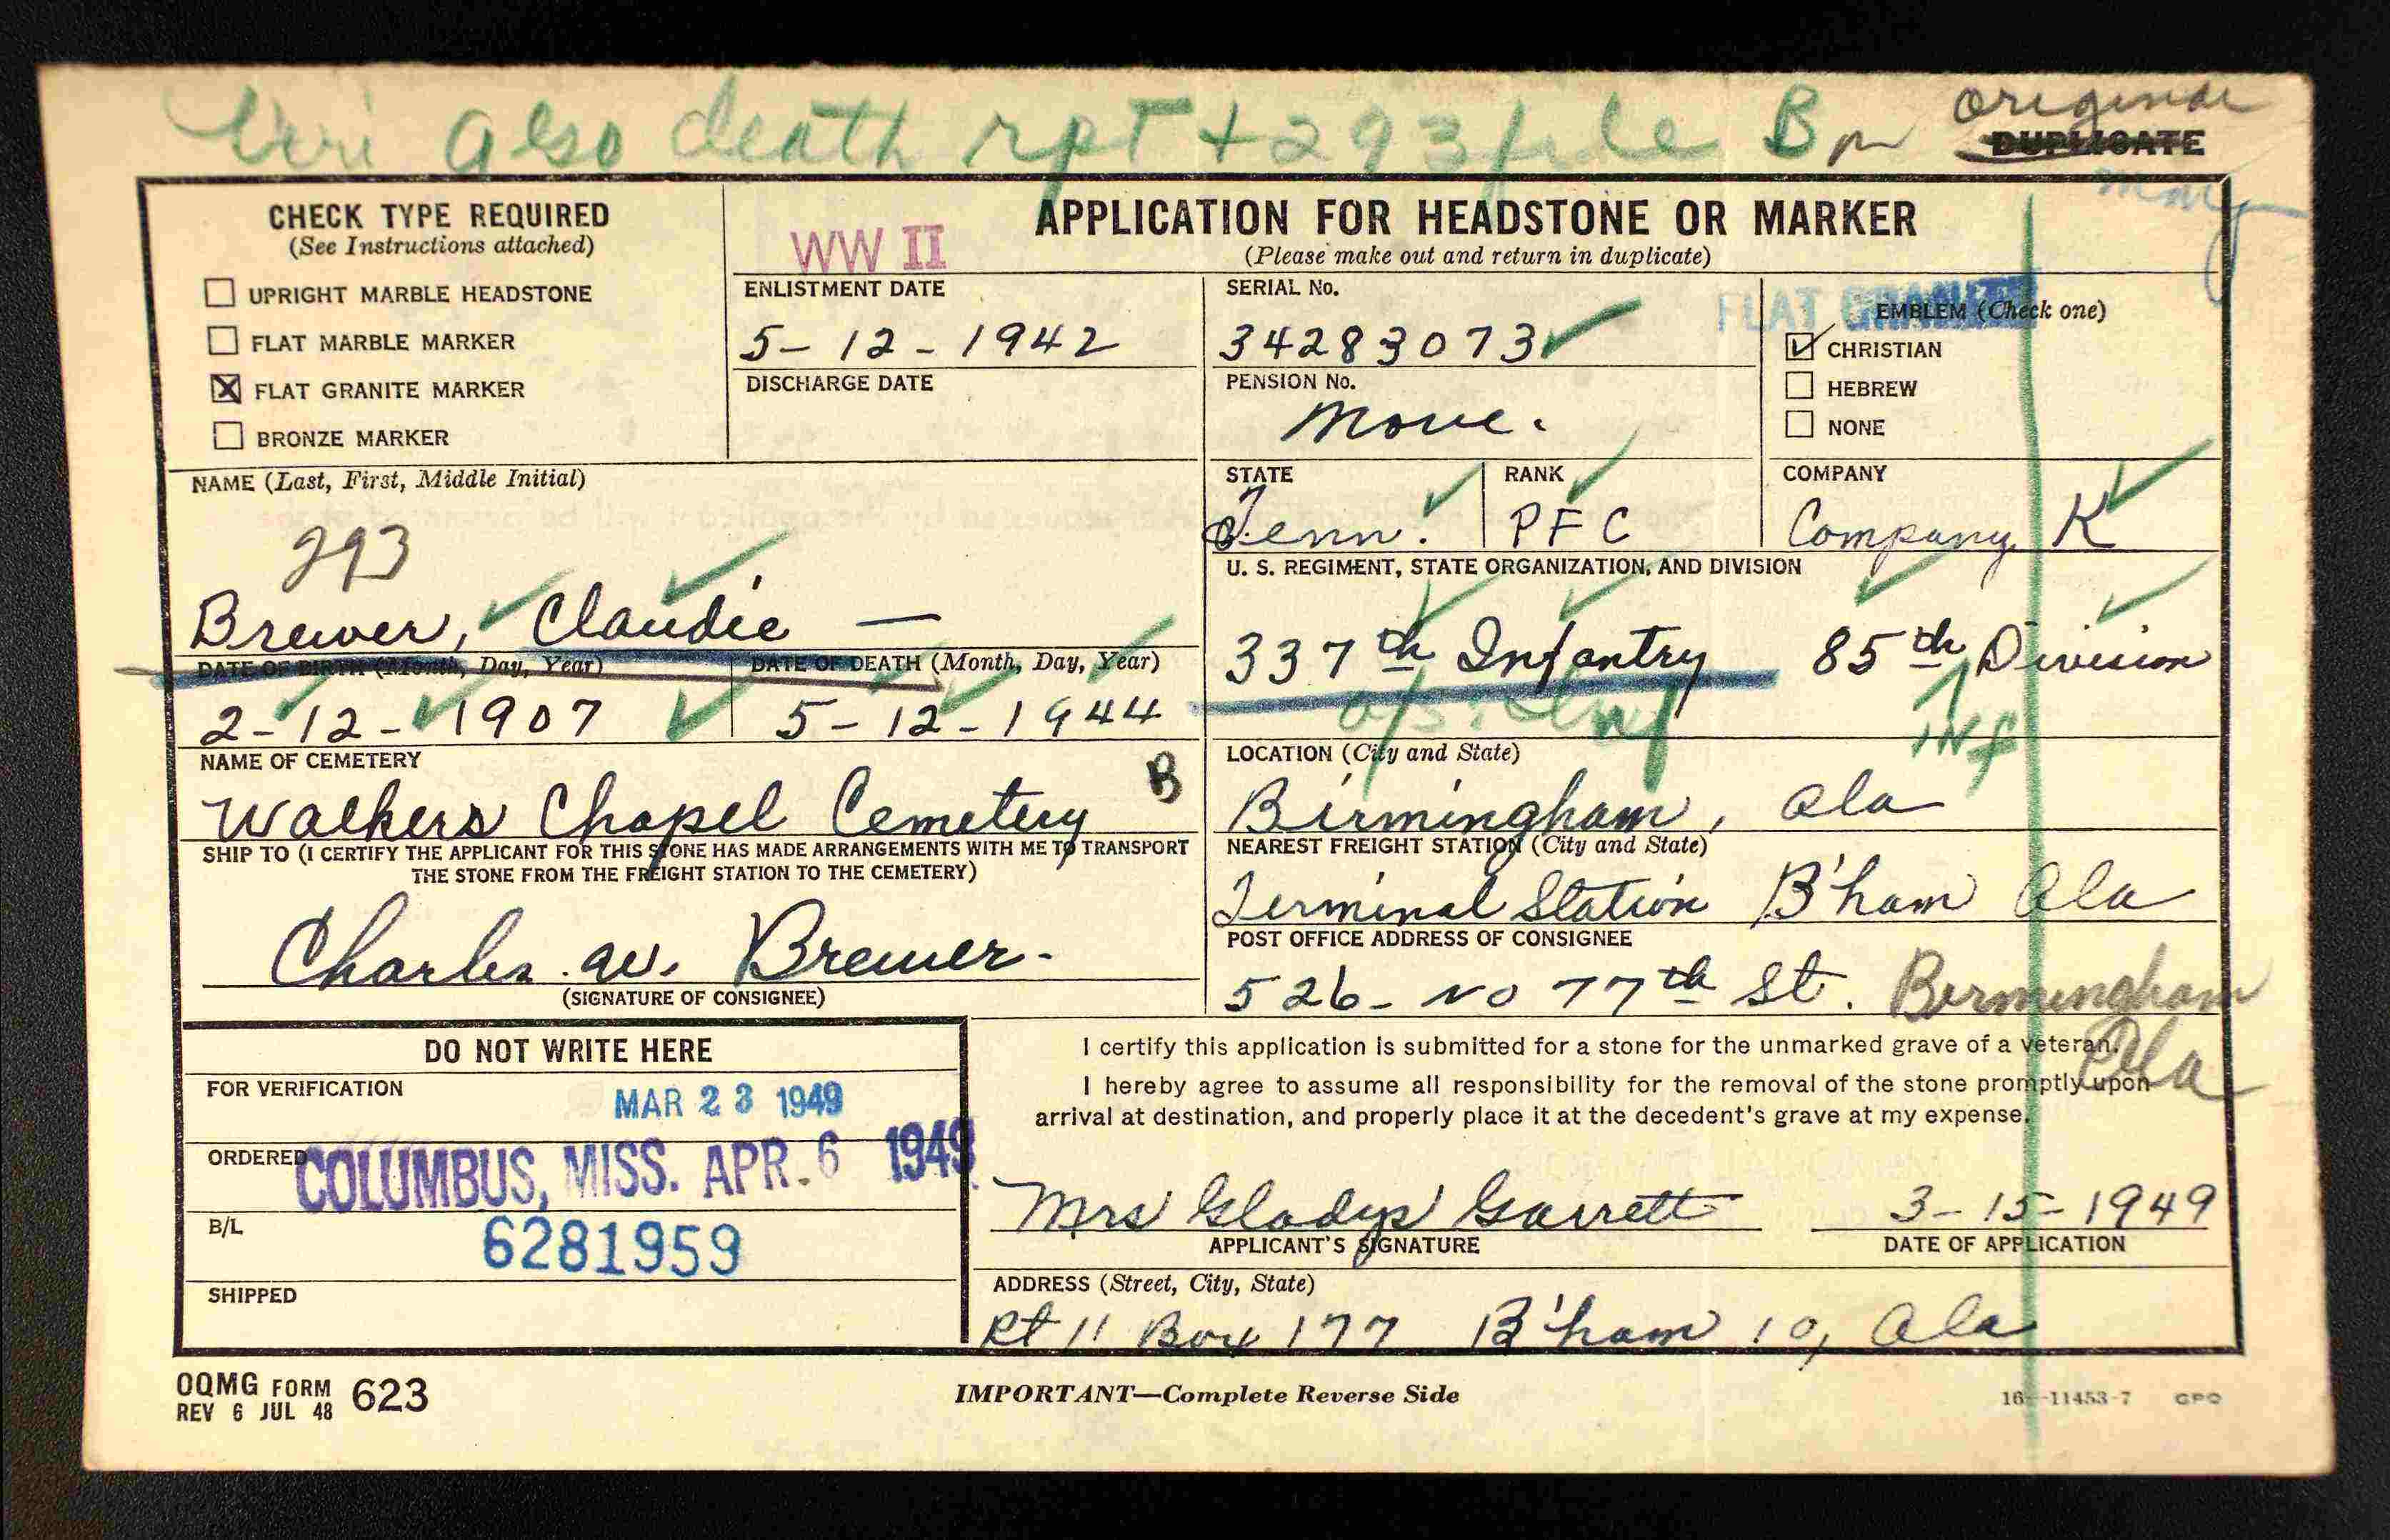 also death rpt + 293 file B
original
DUPLICATE
CHECK TYPE REQUIRED
(See Instructions attached)
UPRIGHT MARBLE HEADSTONE
FLAT MARBLE MARKER
FLAT GRANITE MARKER
BRONZE MARKER
WW II
ENLISTMENT DATE
5-12-1942
DISCHARGE DATE
APPLICATION FOR HEADSTONE OR MARKER
(Please make out and return in duplicate)
SERIAL No.
34283073
PENSION No.
None.
FLAT GRANITE
EMBLEM (Check one)
CHRISTIAN
HEBREW
NONE
NAME (Last, First, Middle Initial)
293
Brewer, Claudie —
STATE
Tenn.
RANK
PFC
COMPANY
Company K
U. S. REGIMENT, STATE ORGANIZATION, AND DIVISION
337th Infantry 85th Division
INF
DATE OF BIRTH (Month, Day, Year)
2-12-1907
DATE OF DEATH (Month, Day, Year)
5-12-1944
NAME OF CEMETERY
Walkers Chapel Cemetery B
LOCATION (City and State)
Birmingham, Ala
SHIP TO (I CERTIFY THE APPLICANT FOR THIS STONE HAS MADE ARRANGEMENTS WITH ME TO TRANSPORT
THE STONE FROM THE FREIGHT STATION TO THE CEMETERY)
Charles W. Brewer.
(SIGNATURE OF CONSIGNEE)
NEAREST FREIGHT STATION (City and State)
Terminal Station B'ham Ala
POST OFFICE ADDRESS OF CONSIGNEE
526- No 77th St. Birmingham
Ala
DO NOT WRITE HERE
FOR VERIFICATION
MAR 23 1949
ORDERED
COLUMBUS, MISS. APR. 6 1949
B/L
6281959
SHIPPED
I certify this application is submitted for a stone for the unmarked grave of a veteran.
I hereby agree to assume all responsibility for the removal of the stone promptly upon
arrival at destination, and properly place it at the decedent's grave at my expense.
Mrs Gladys Garrett
APPLICANT'S SIGNATURE
3-15-1949
DATE OF APPLICATION
ADDRESS (Street, City, State)
Rt 11 Box 177 B'ham 10, Ala
OQMG FORM 623
REV 6 JUL 48
IMPORTANT—Complete Reverse Side
16—11453-7 GPO